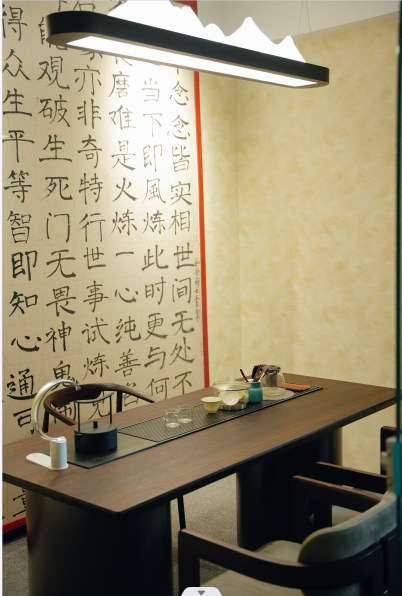 念念皆实相世间无处不
当下即風炼此时更与何
磨难是火炼一心纯善
亦非奇特行世事试炼无
能觀破生死门无畏神鬼
得众生平等智即知心通